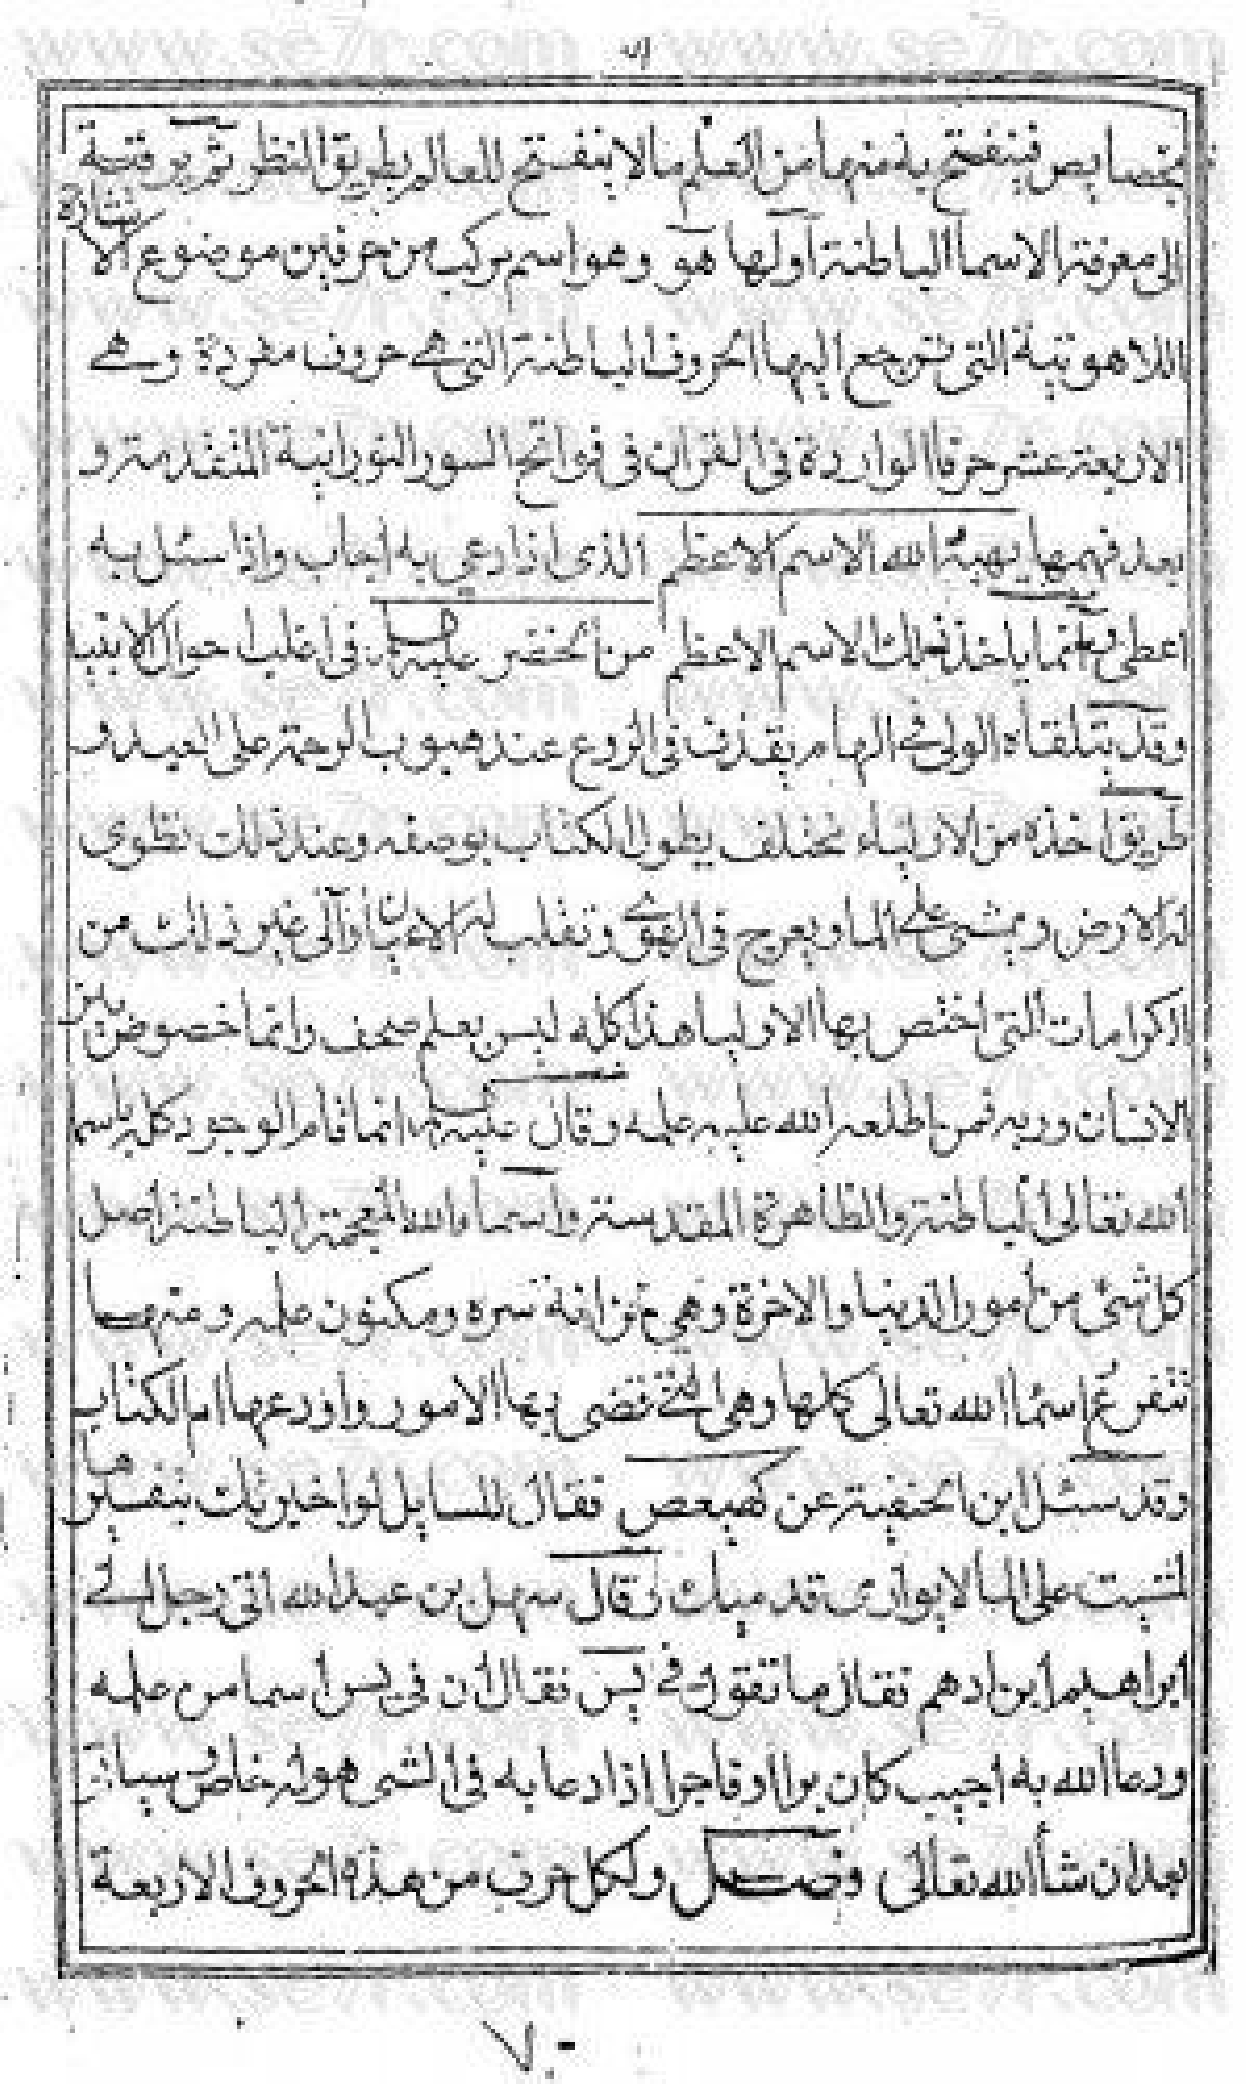 بخصايص فينفتح به منها من العلم ما لا ينفتح للعالم بطريق النظر ثم يرقيه
الى معرفة الاسما الباطنة اولها هو وهو اسم مركب من حرفين موضوع لاشارة
اللاهوتية التى ترجع اليها الحروف الباطنة التى هى حروف مفردة وهى
الاربعة عشر حرفا الواردة فى القران فى فواتح السور النورانية المتقدمة و
بعد فهمها يهبه الله الاسم الاعظم الذى اذا دعى به اجاب واذا سئل به
اعطى وانما ياخذ ذلك الاسم الاعظم من الخضر عليه السلام فى اغلب احوال الاتقيا
وقد يتلقاه الولى فى الهام يقذف فى الروع عند هبوب الرحمة على العبد و
طريق اخذه من الاولياء مختلف يطول الكتاب بوصفه وعند ذلك تطوى
له الارض ويمشى على الما ويعرج فى الهوى وتقلب له الاعيان والى غير ذلك من
الكرامات التى اختص بها الاوليا هذا كله ليس بعلم صحف وانما خصوص بين
الانسان وربه فمن اطلعه الله عليه علمه وقال عليه السلام انما قام الوجود كله باسما
الله تعالى الباطنة والظاهرة المقدسة واسماء الله المعجمة الباطنة اصل
كل شىء من امور الدنيا والاخرة وهى خزانة سره ومكنون علمه ومنها
تتفرع اسما الله تعالى كلها وهى التى تقضى بها الامور واودعها ام الكتاب
وقد سئل ابن الحنفية عن كهيعص فقال للسايل لو اخبرتك بتفسيرها
لمشيت على الما لا يوارى قدميك وقال سهل بن عبد الله اتى رجل الى
ابراهيم ابن ادهم فقال ما تقول فى يس فقال ان فى يس اسما من علمه
ودعا الله به اجيب كان برا او فاجرا اذا دعا به فى الشى هو له خاص وسياتى
بعد ان شا الله تعالى وفصل ولكل حرف من هذه الحروف الاربعة
٧٠